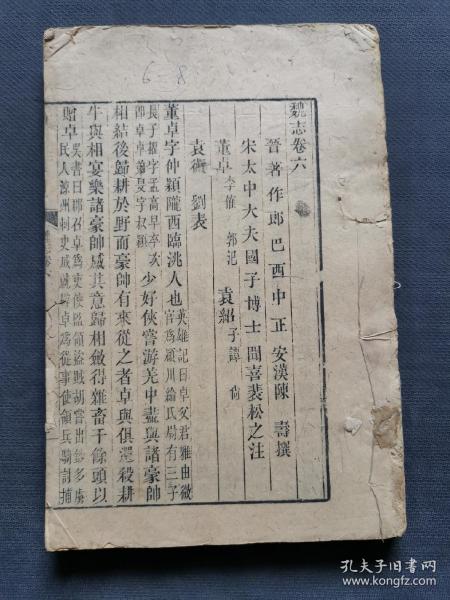 6-8
魏志卷六
晉著作郎巴西中正安漢陳壽撰
宋太中大夫國子博士聞喜裴松之注
董卓 李傕 郭汜 袁紹 子譚 尚
袁術 劉表
董卓字仲穎隴西臨洮人也 英雄記曰卓父君雅由微官為潁川綸氏尉有三子
長子擢字孟高早卒次即卓卓弟旻字叔穎 少好俠嘗游羌中盡與諸豪帥
相結後歸耕於野而豪帥有來從之者卓與俱還殺耕
牛與相宴樂諸豪帥感其意歸相斂得雜畜千餘頭以
贈卓 吳書曰郡召卓為吏使監領盜賊胡嘗出鈔多虜民人涼州刺史成就辟卓為從事使領兵騎討捕
孔夫子旧书网
www.kongfz.com